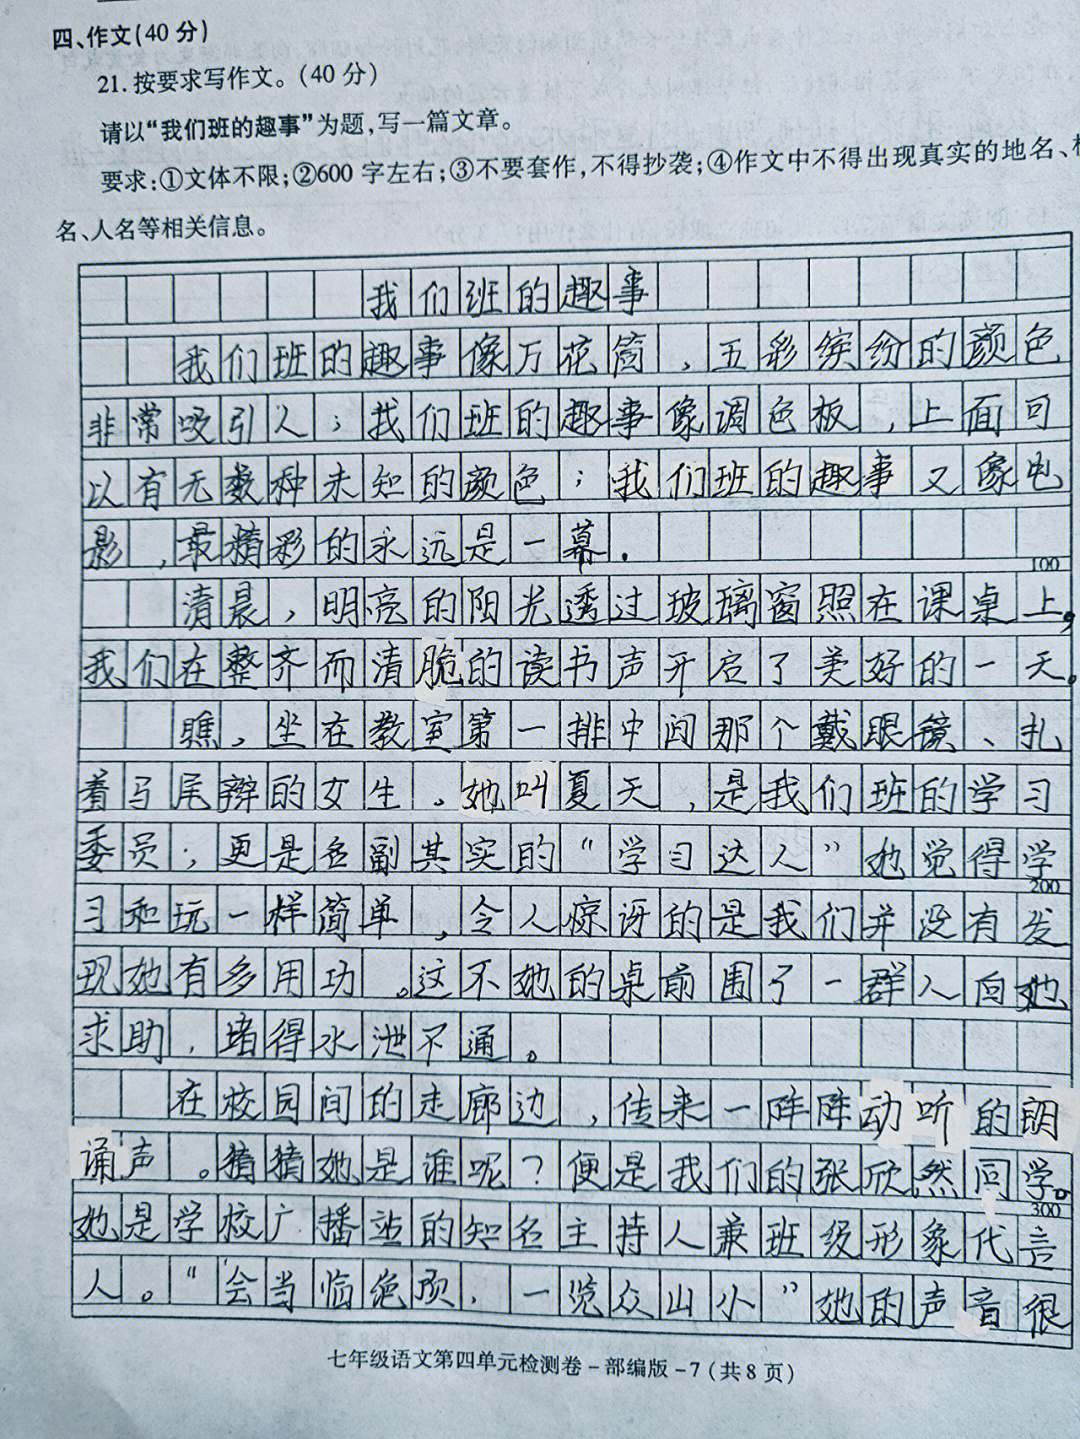 四、作文(40分)
21.按要求写作文。(40分)
请以“我们班的趣事”为题,写一篇文章。
要求:①文体不限;②600字左右;③不要套作,不得抄袭;④作文中不得出现真实的地名、
名、人名等相关信息。
我们班的趣事
我们班的趣事像万花筒,五彩缤纷的颜色
非常吸引人;我们班的趣事像调色板,上面可
以有无数种未知的颜色;我们班的趣事又像电
影,最精彩的永远是一幕.
100
清晨,明亮的阳光透过玻璃窗照在课桌上,
我们在整齐而清脆的读书声开启了美好的一天。
瞧,坐在教室第一排中间那个戴眼镜、扎
着马尾辫的女生。她叫夏天,是我们班的学习
委员;更是名副其实的“学习达人”她觉得学
200
习和玩一样简单,令人惊讶的是我们并没有发
现她有多用功。这不她的桌前围了一群人向她
求助,堵得水泄不通。
在校园间的走廊边,传来一阵阵动听的朗
诵声。猜猜她是谁呢?便是我们的张欣然同学。
300
她是学校广播站的知名主持人兼班级形象代言
人。“会当临绝顶,一览众山小”她的声音很
七年级语文第四单元检测卷-部编版-7(共8页)